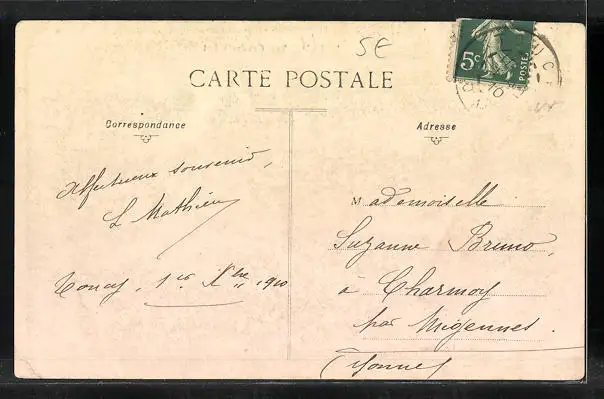 5E
CARTE POSTALE
Correspondance
Affectueux souvenir,
L Mathieu
Toucy, 1er Xbre 1910
Adresse
Mademoiselle
Suzanne Bruno,
à Charmoy
par Migennes.
Yonne
5c
POSTE